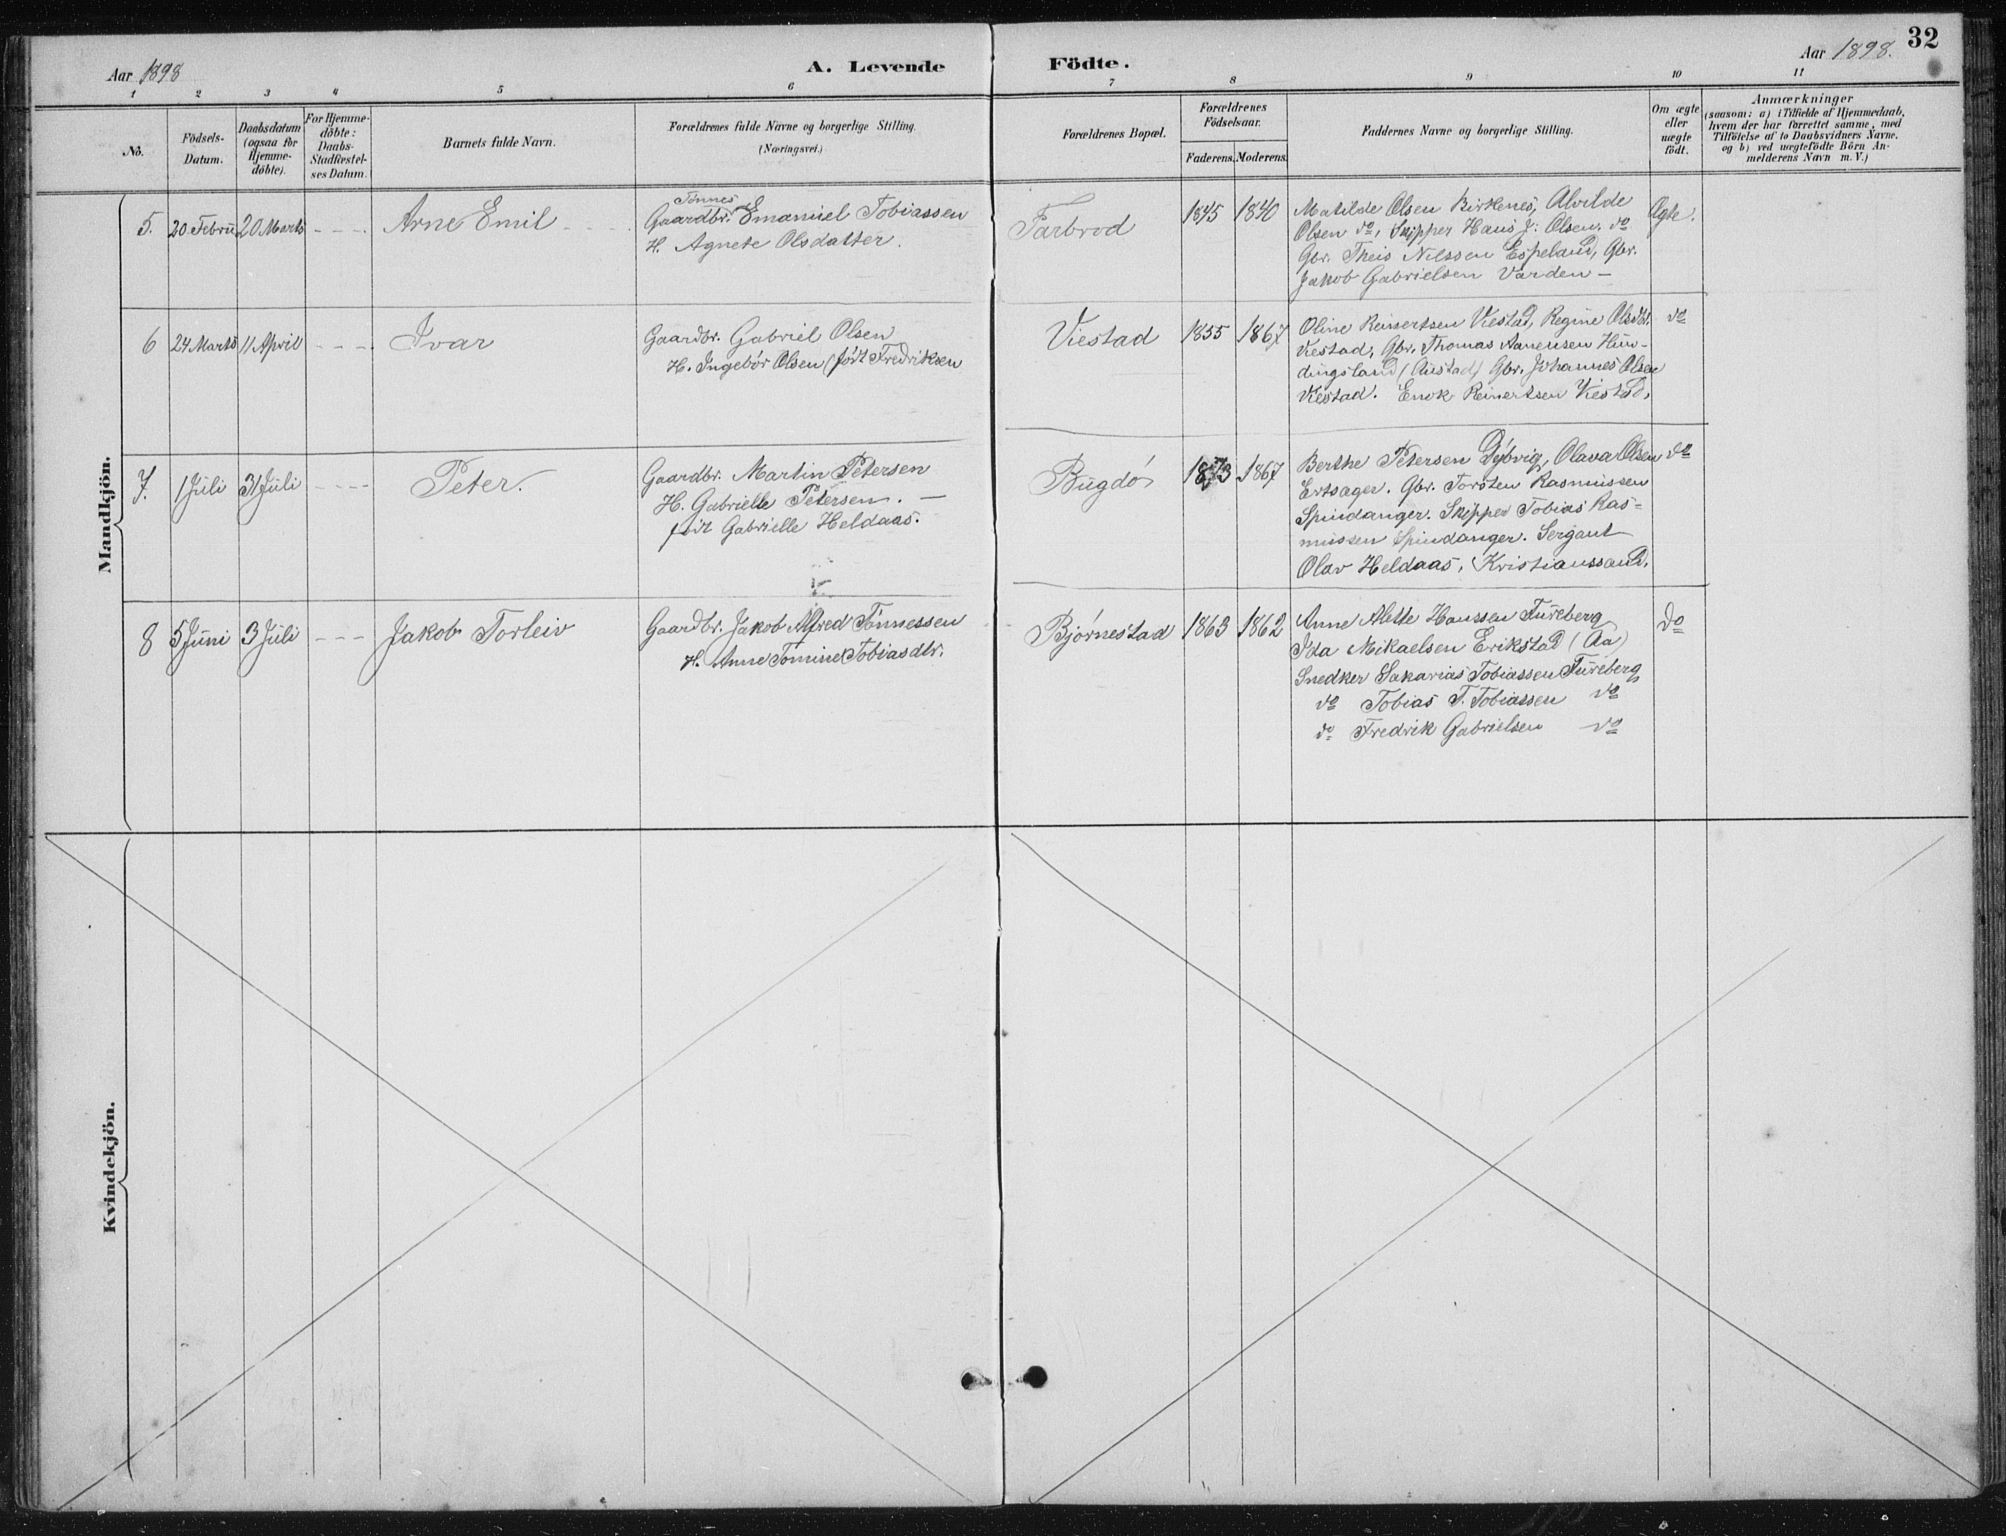 32
Aar 1898
A. Levende Födte.
Aar 1898.
1 2 3 4 5 6 7 8 9 10 11
No.
Födsels-
Datum.
Daabsdatum
(ogsaa for
Hjemme-
döbte).
For Hjemme-
döbte:
Daabs-
Stadfæstel-
ses Datum.
Barnets fulde Navn.
Forældrenes fulde Navne og borgerlige Stilling.
(Næringsvei.)
Forældrenes Bopæl.
Forældrenes
Födselsaar.
Faderens. Moderens.
Faddernes Navne og borgerlige Stilling.
Om ægte
eller
uægte
födt.
Anmærkninger
(saasom: a) i Tilfælde af Hjemmedaab,
hvem der har forrettet samme, med
Tilföielse af to Daabsvidners Navne.
og b) ved uægtefödte Börn An-
melderens Navn m. V.)
Mandkjön.
5. 20 Febru 20 Marts - - - - Arne Emil - - - -
Tönnes
Gaardbr. Emanuel Tobiassen
H. Agnete Olsdatter.
Farbrod 1845 1840
Matilde Olsen Birkenes, Alvilde
Olsen do, Skipper Hans J. Olsen. do
Gbr. Theis Nilssen Espeland, Gbr.
Jakob Gabrielsen Varden —
Ægte.
6 24 Marts 11 April - - - - Ivar
Gaardbr. Gabriel Olsen
H. Ingebór Olsen (født Fredriksen
Viestad 1855 1867
Oline Reinertsen Viestad, Regine Olsdtr.
Viestad, Gbr. Thomas Aanensen Hun-
dingsland / Gbr. Johannes Olsen
Viestad. Enok Reinertsen Viestad,
do
7. 1 Juli 31 Juli - - - - Peter.
Gaardbr. Martin Petersen
H. Gabrielle Petersen. —
født Gabrielle Heldaas.
Bugdø 1873 1867
Berthe Petersen Dybvig, Olava Olsen
Ertsager. Gbr. Torsten Rasmussen
Spindanger. Skipper Tobias Ras=
mussen Spindanger. Sergant
Olav Heldaas, Kristianssand.
do
8 5 Juni 3 Juli - - - Jakob Torleiv
Gaardbr. Jakob Alfred Tönnessen
H. Anne Tomine Tobiasdtr.
Bjørnestad 1863 1862
Anne Alette Hanssen Fureberg
Ida Mikaelsen Erikstad (Aa)
Snedker Sakarias Tobiassen Fureberg
do Tobias T. Tobiassen do
do Fredrik Gabrielsen do
Do
Kvindekjön.